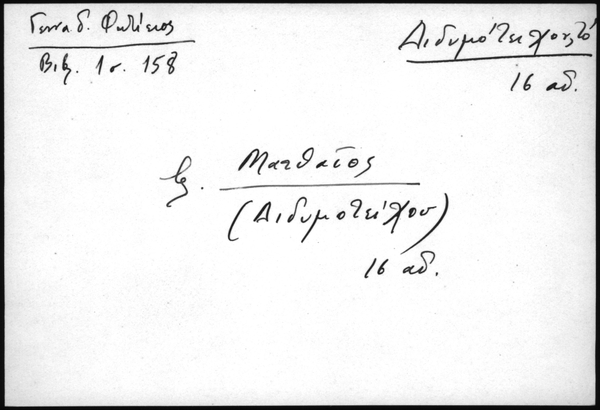 Γενναδ. Φωτίειος
Βιβ. 1 σ. 158
Διδυμότειχον, τό
16 αἰ.
βλ. Ματθαῖος
(Διδυμοτείχου)
16 αἰ.